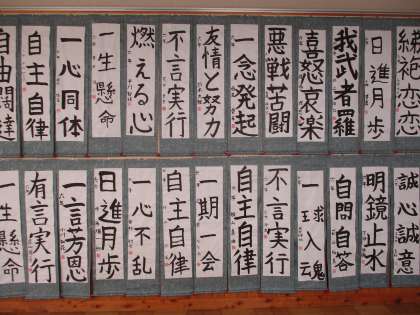 縕袍恋恋
日進月歩
我武者羅
喜怒哀楽
悪戦苦闘
一念発起
友情と努力
不言実行
燃える心
一生懸命
一心同体
自主自律
自由闊達
誠心誠意
明鏡止水
自問自答
一球入魂
不言実行
自主自律
一期一会
自主自律
一心不乱
日進月歩
一言芳恩
有言実行
一生懸命